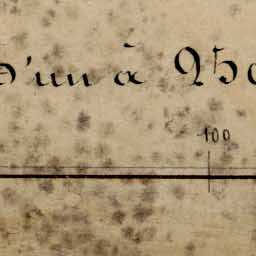 d'un à 250
100